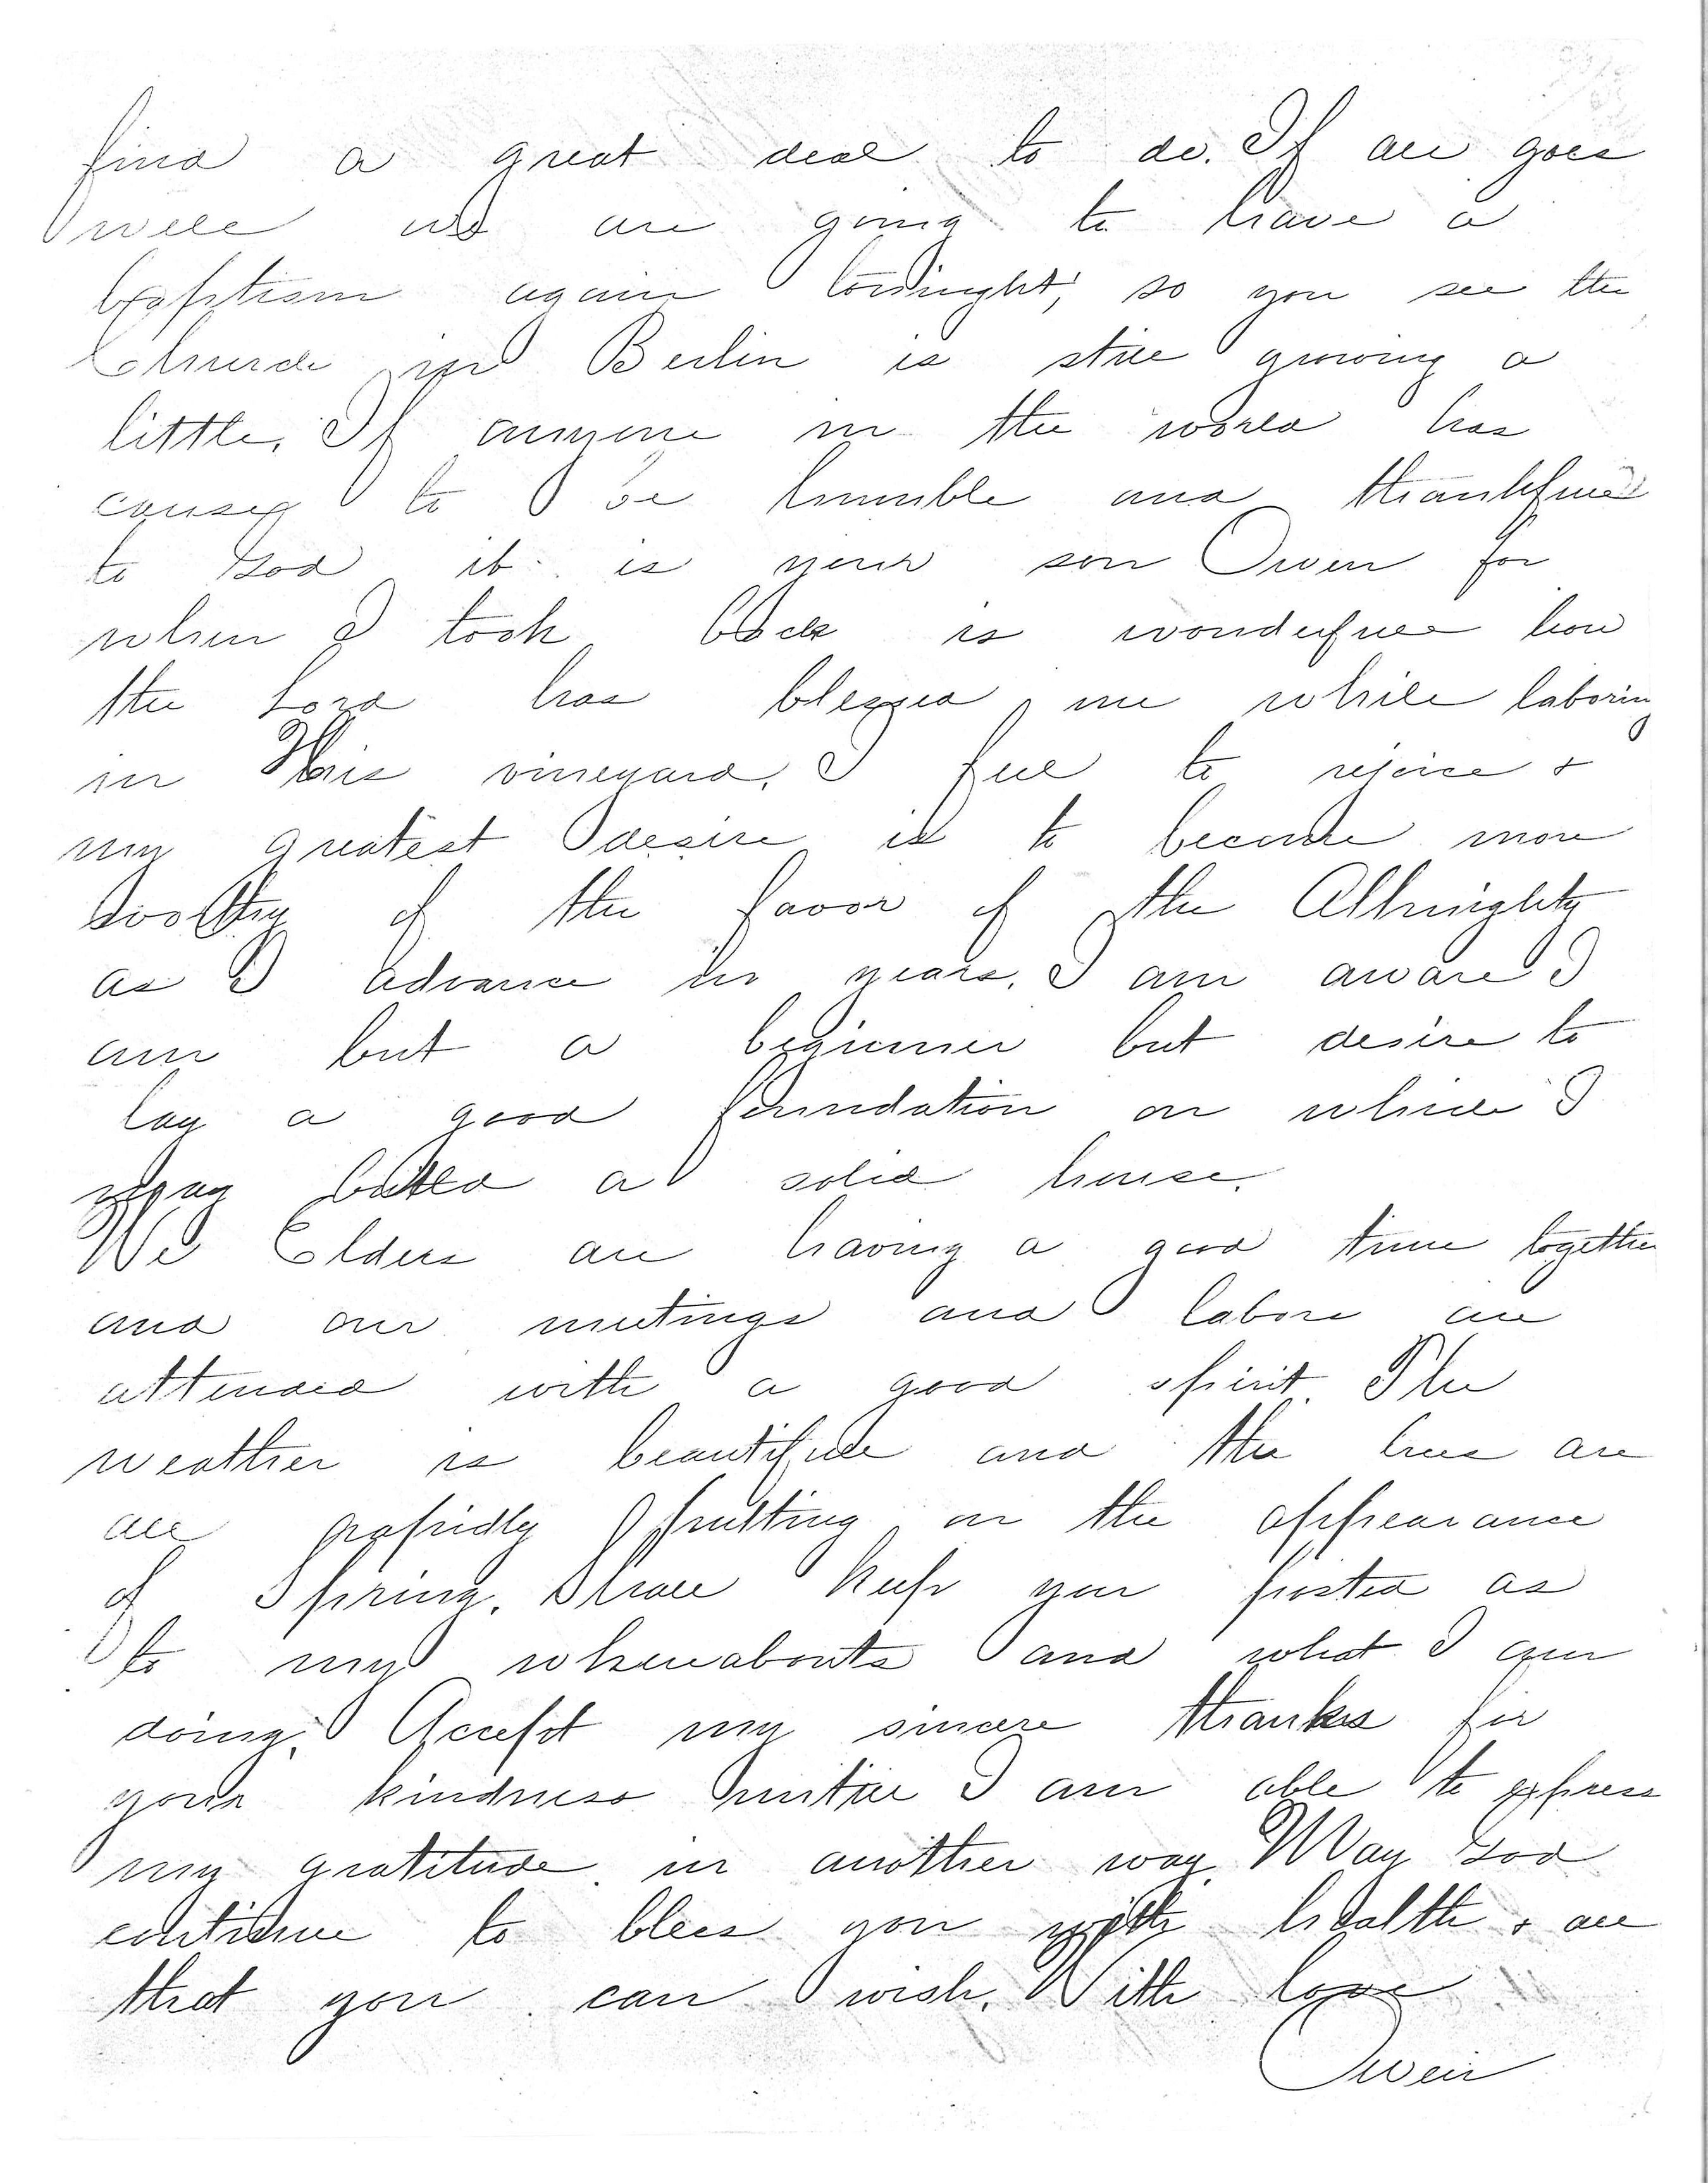 find a great deal to do. If all goes
well we are going to have a
baptism again tonight, so you see the
Church in Berlin is still growing a
little. If anyone in the world has
cause to be humble and thankful
to God it is your son Owen for
when I took back is wonderful how
the Lord has blessed me while laboring
in His vineyard. I feel to rejoice &
my greatest desire is to become more
worthy of the favor of the Allmighty
as I advance in years. I am aware I
am but a beginner but desire to
lay a good foundation on which I
may build a solid house.
We Elders are having a good time together
and our meetings and labors are
attended with a good spirit. The
weather is beautiful and the trees are
all rapidly putting on the appearance
of Spring. Shall keep you posted as
to my whereabouts and what I am
doing. Accept my sincere thanks for
your kindness untill I am able to express
my gratitude in another way. May God
continue to bless you with health & all
that you can wish. With love
Owen